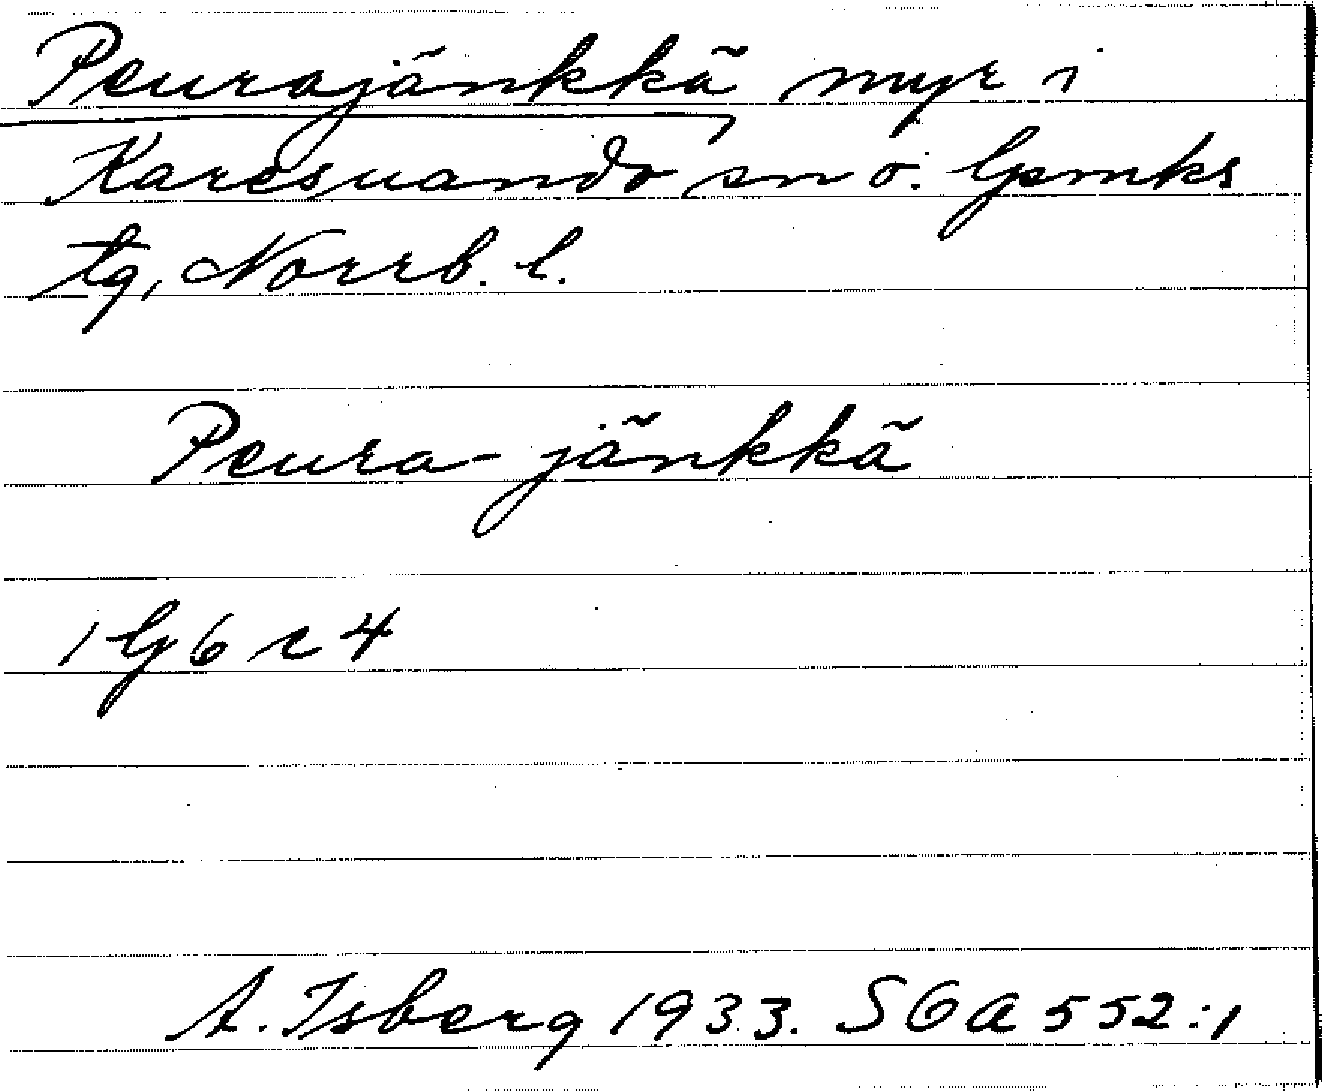 Peurajänkkä, myr i
Karesuando sn o. lpmks
tg, Norrb. l.
Peura- jänkkä
1 6 c 4
A. Isberg 1933. SOA 552:1